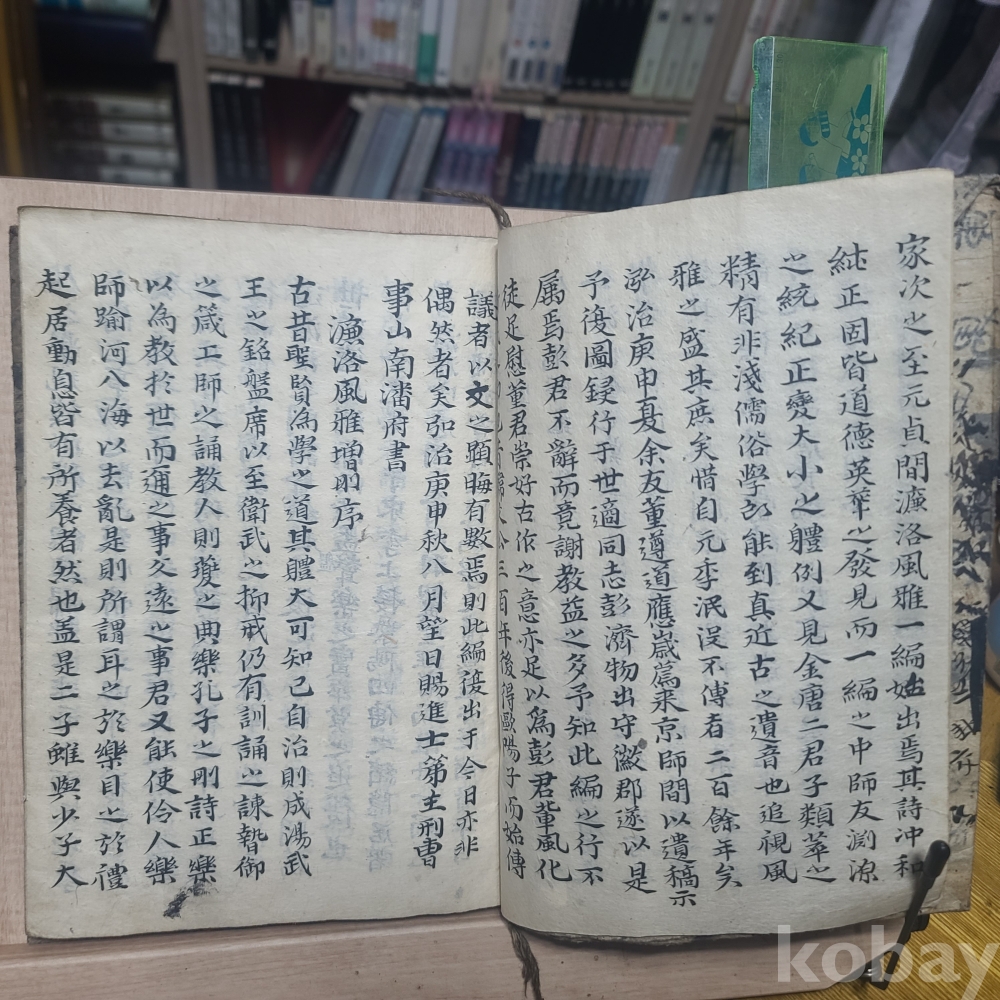 家次之至元貞間濂洛風雅一編始出焉其詩冲和
純正固皆道德英華之發見而一編之中師友淵源
之統紀正變大小之體例又見金唐二君子類萃之
精有非淺儒俗學所能到真近古之遺音也追視風
雅之盛其庶矣惜自元季泯沒不傳者二百餘年矣
弘治庚申夏余友董遵道應歲薦来京師間以遺稿示
予復圖錄行于世適同志彭濟物出守徽郡遂以是
属焉彭君不辭而竟謝教益之多予知此編之行不
徒足慰董君崇好古作之意亦足以為彭君軰風化
百年後得歐陽子而始傳
議者以文之顯晦有數焉則此編復出于今日亦非
偶然者矣弘治庚申秋八月望日賜進士第主刑曹
事山南潘府書
濂洛風雅增刪序
古昔聖賢為學之道其體大可知已自治則成湯武
王之銘盤席以至衛武之抑戒仍有訓誦之諫暬御
之箴工師之誦教人則夔之典樂孔子之刪詩正樂
以為教於世而邇之事父遠之事君又能使伶人樂
師踰河入海以去亂是則所謂耳之於樂目之於禮
起居動息皆有所養者然也盖是二子雖與少子大
kobay